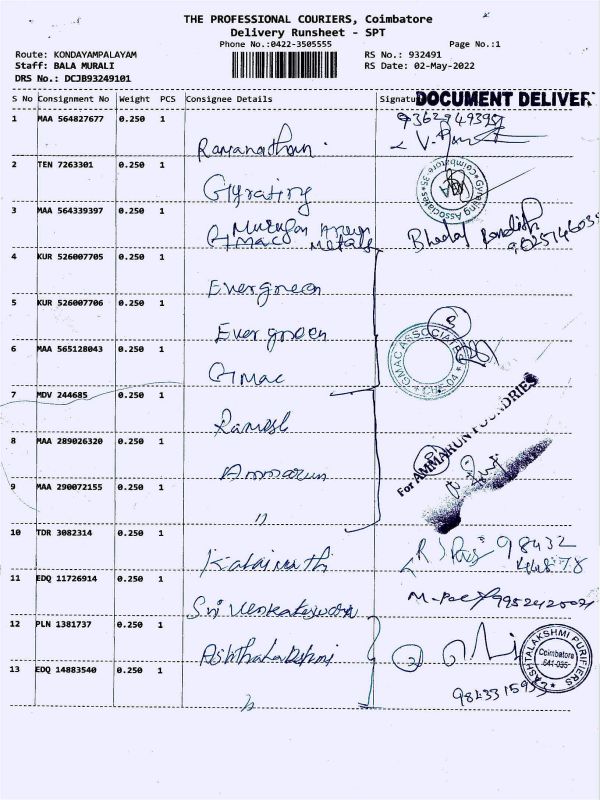 THE PROFESSIONAL COURIERS, Coimbatore
Delivery Runsheet - SPT
Phone No.:0422-3505555
Page No.:1
Route: KONDAYAMPALAYAM
RS No.: 932491
Staff: BALA MURALI
RS Date: 02-May-2022
DRS No.: DCJB93249101
S No Consignment No Weight PCS Consignee Details Signatu
DOCUMENT DELIVER
1 MAA 564827677 0.250 1 Ramanathan
2 TEN 7263301 0.250 1 Gyrating
Gyrating Associates Coimbatore 35
3 MAA 564339397 0.250 1 Murugan Metals
Gmac
4 KUR 526007705 0.250 1 Evergreen
5 KUR 526007706 0.250 1 Evergreen
6 MAA 565128043 0.250 1 Gmac
GMAC ASSOCIAT
7 MDV 244685 0.250 1 Ramesh
8 MAA 289026320 0.250 1 Ammarun
For AMMARUN FOUNDRIES
9 MAA 290072155 0.250 1 "
10 TDR 3082314 0.250 1 98432
44878
11 EDQ 11726914 0.250 1 Sri Venkateswara
12 PLN 1381737 0.250 1 Ashthalakshmi
2
ASHTALAKSHMI PURIFIERS Coimbatore 641 035
13 EDQ 14883540 0.250 1